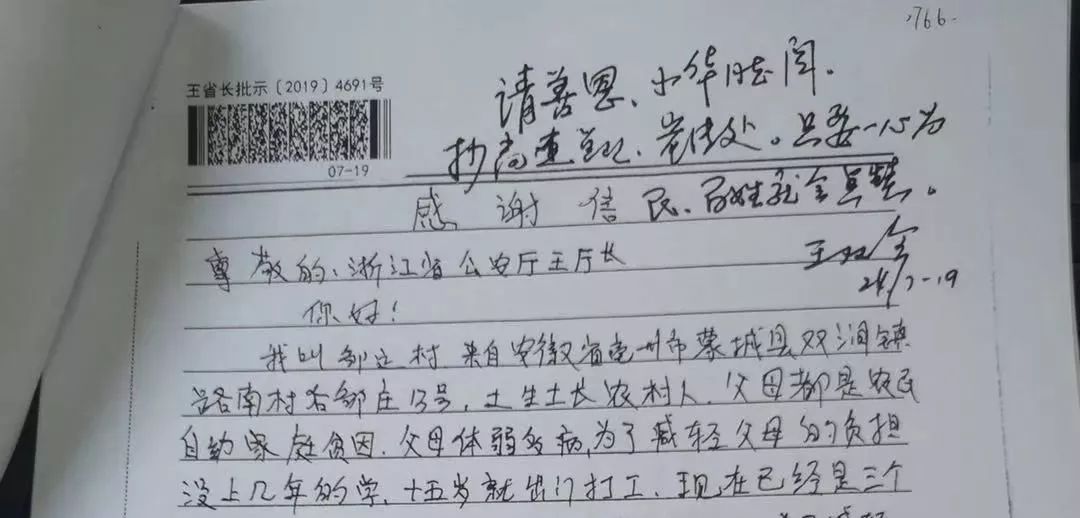 766
王省长批示〔2019〕4691号
07-19
请善恩、小华同志阅。
抄高速总队、岩信处。只要一心为
民、百姓就会点赞。
王双全
24/7-19
感谢信
尊敬的:浙江省公安厅王厅长
你好!
我叫邹之村 来自安徽省亳州市蒙城县双涧镇
路南村右邹庄13号,土生土长农村人.父母都是农民
自幼家庭贫困.父母体弱多病,为了减轻父母的负担
没上几年的学、十五岁就出门打工、现在已经是三个